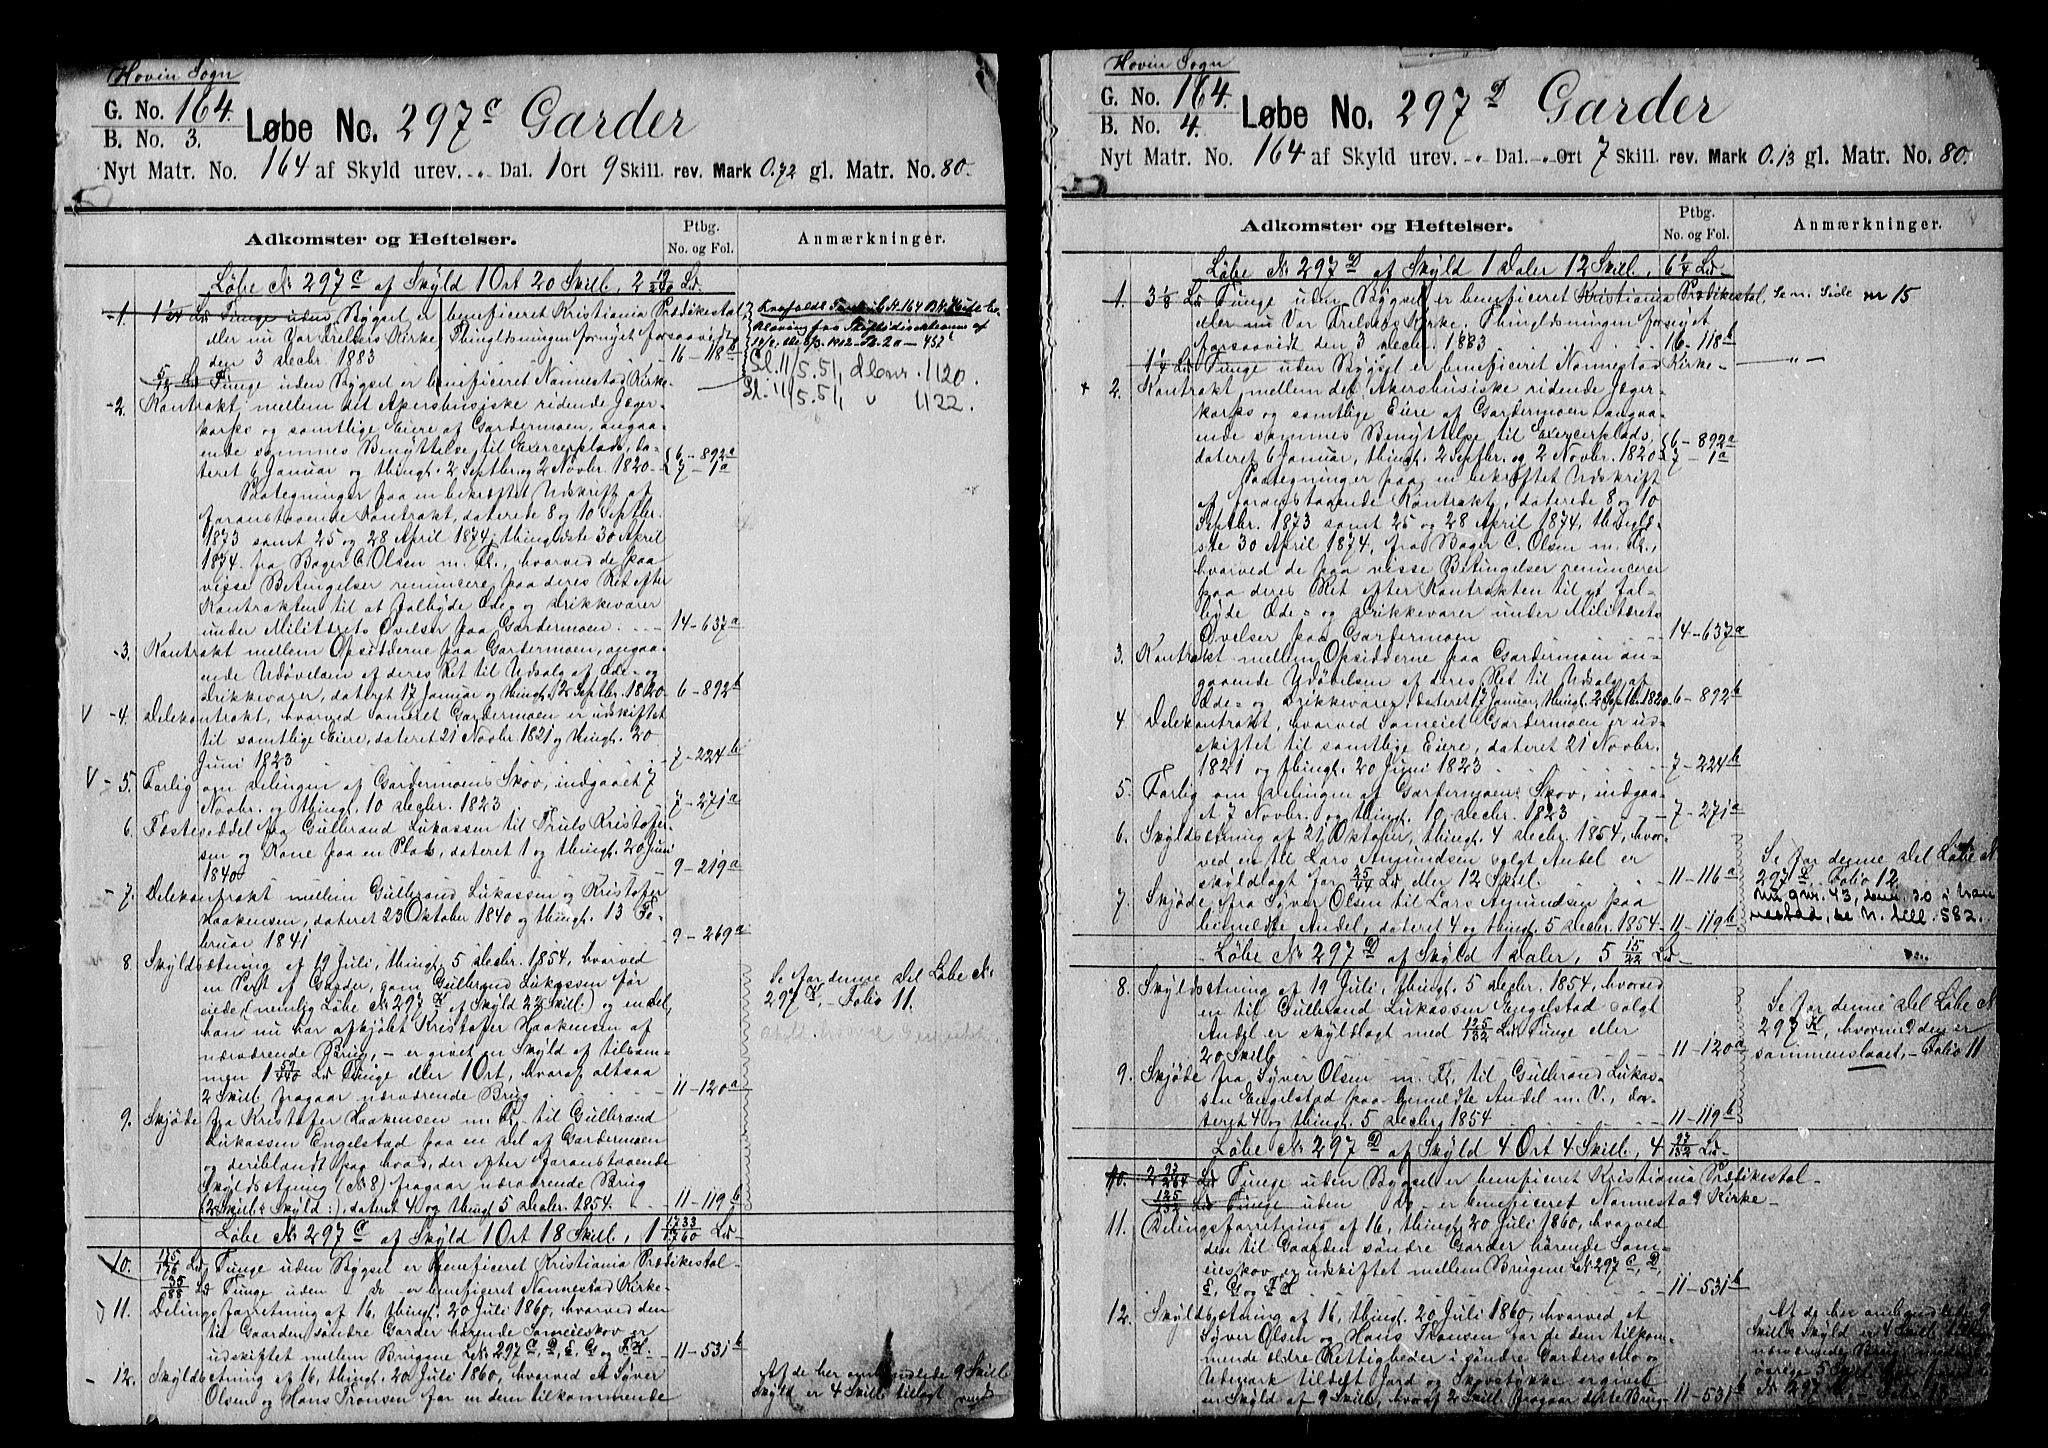 Hovin Sogn
G. No. 164.
B. No. 3.
Løbe No. 297c Garder
Nyt Matr. No. 164 af Skyld urev. „ Dal. 1 Ort 9 Skill. rev. Mark 0.72 gl. Matr. No. 80.
Adkomster og Heftelser.
Ptbg. No. og Fol.
Anmærkninger.
Löbe № 297 C af Skyld 1 Ort 20 Skill, 2 19/240 Ld.
1. Ld Tunge uden Bygsel er beneficeret Kristiania Prædikestol
eller nu Vor Frelsers Kirke Thinglæsningen fornyet forsaavidt
den 3 Decbr 1883 16 - 118b
Ld Tunge uden Bygsel er beneficeret Nannestad Kirke-
Gl. 11/5.51, 1120.
Gl. 11/5.51, " 1122.
2. Kontrakt mellem det Akershusiske ridende Jæger-
korps og samtlige Eiere af Gardermoen, angaa-
ende sammes Benyttelse til Exercerplads, da-
teret 6 Januar og thingl. 2 Septbr og 2 Novbr. 1820 - 6 - 892a 7 - 1a
Paategninger paa en bekræftet Udskrift af
foranstaaende Kontrakt, daterede 8 og 10 Septbr.
1873 samt 25 og 28 April 1874, thinglæste 30 April
1874 fra Bager C. Olsen m. Fl., hvorved de paa
visse Betingelser renuncere paa deres Ret efter
Kontrakten til at falbyde Æde- og Drikkevarer
under Militærets Övelser paa Gardermoen. 14 - 637a
3. Kontrakt mellem Opsidderne paa Gardermoen, angaa-
ende Udøvelsen af deres Ret til Udsalg af Æde- og
Drikkevarer, dateret 17 Januar og thingl. 2 Septbr. 1820 - 6 - 892b
V - 4. Delekontrakt, hvorved Sameiet Gardermoen er udskiftet
til samtlige Eiere, dateret 21 Novbr. 1821 og thingl. 20
Juni 1823 7 - 224b
V - 5. Forlig om Delingen af Gardermoens Skov, indgaaet 7
Novbr. og thingl. 10 Decbr. 1823 7 - 271a
6. Fæsteseddel fra Gulbrand Lukassen til Truls Kristofer-
sen og Kone paa en Plads, dateret 1 og thingl. 20 Juni
1840 9 - 219a
- 7. Delekontrakt mellem Gulbrand Lukassen og Kristofer
Haakensen, dateret 23 Oktober 1840 og thingl. 13 Fe-
bruar 1841 9 - 269a
8. Skyldsætning af 19 Juli, thingl. 5 Decbr. 1854, hvorved
en Part af Garder, som Gulbrand Lukassen før
eiede, (nemlig Løbe № 297 K af Skyld 22 Skill.) og en del,
han nu har afkjøbt Kristofer Haakensen af
nærværende Brug, - er givet en Skyld af tilsam-
men 1 Ld Tunge eller 1 Ort, hvoraf altsaa
2 Skill. fragaar nærværende Brug 11 - 120a
Se for denne Del Løbe №
297 K, - Folio 11.
9. Skjøde fra Kristofer Haakensen m. Fl. til Gulbrand
Lukassen Engelstad paa en Del af Gardermoen
og deriblandt paa hvad, der efter foranstaaende
Skyldsætning (№ 8) fragaar nærværende Brug
(2 Skill. Skyld:), dateret 4 og thingl. 5 Decbr. 1854. 11 - 119b
Løbe № 297 C af Skyld 1 Ort 18 Skill, 1 1233/1760 Ld
10. 175/176 Ld Tunge uden Bygsel er beneficeret Kristiania Prædikestol -
35/88 Ld Tunge uden Do - er beneficeret Nannestad Kirke -
11. Delingsforretning af 16, thingl. 20 Juli 1860, hvorved den
til Gaarden søndre Garder hørende Sameieskov er
udskiftet mellem Brugene L№ 297 C, D, E, G og F H. 11 - 531b
12. Skyldsætning af 16, thingl. 20 Juli 1860, hvorved et Syver
Olsen og Hans Tronsen for en dem tilkommende
Af de her omhandlede 9 Skill.
Skyld er 4 Skill. tillagt
Hovin Sogn
G. No. 164.
B. No. 4.
Løbe No. 297 D Garder
Nyt Matr. No. 164 af Skyld urev. „ Dal. „ Ort 7 Skill. rev. Mark 0.13 gl. Matr. No. 80.
Adkomster og Heftelser.
Ptbg. No. og Fol.
Anmærkninger.
Løbe № 297 D af Skyld 1 Daler 12 Skill., 6 1/4 Ld.
1. 3 1/8 Ld Tunge uden Bygsel er beneficeret Kristiania Prædikestol,
eller nu Vor Frelsers Kirke. Thinglæsningen fornyet
forsaavidt den 3 Decbr. 1883 16 - 118b
Se n. Side nr 15
1 1/4 Ld Tunge uden Bygsel er beneficeret Nannestad Kirke - — „ —
+ 2. Kontrakt mellem det Akershusiske ridende Jæger-
korps og samtlige Eiere af Gardermoen, angaa-
ende sammes Benyttelse til Exercerplads,
dateret 6 Januar, thingl. 2 Septbr. og 2 Novbr. 1820 6 - 892a 7 - 1a
Paategninger paa en bekræftet Udskrift
af foranstaaende Kontrakt, daterede 8 og 10
Septbr. 1873 samt 25 og 28 April 1874, thinglæ-
ste 30 April 1874, fra Bager C. Olsen m. Fl.,
hvorved de paa visse Betingelser renuncerer
paa deres Ret efter Kontrakten til at fal-
byde Æde- og Drikkevarer under Militærets
Övelser paa Gardermoen 14 - 637a
3. Kontrakt mellem Opsidderne paa Gardermoen an-
gaaende Udøvelsen af deres Ret til Udsalg af
Æde- og Drikkevarer, dateret 17 Januar, thingl. 2 Septbr. 1820 6 - 892b
4. Delekontrakt, hvorved Sameiet Gardermoen er ud-
skiftet til samtlige Eiere, dateret 21 Novbr.
1821 og thingl. 20 Juni 1823 7 - 224b
5. Forlig om Delingen af Gardermoens Skov, indgaa-
et 7 Novbr. og thingl. 10 Decbr. 1823 7 - 271a
6. Skyldsætning af 21 Oktober, thingl. 4 Decbr. 1854, hvor-
ved en til Lars Amundsen solgt Andel er
skyldlagt for 25/44 Ld eller 12 Skill. 11 - 116a
Se for denne Del Løbe №
297 L. Folio 12.
nu gnr. 43, bnr. 30 i Nan-
nestad, se N. dell. 582.
7. Skjøde fra Syver Olsen til Lars Amundsen paa
bemeldte Andel, dateret 4 og thingl. 5 Decbr. 1854 - 11 - 119b
Løbe № 297 D af Skyld 1 Daler, 5 15/22 Ld -
8. Skyldsætning af 19 Juli, thingl. 5 Decbr. 1854, hvorved
en til Gulbrand Lukassen Engelstad solgt
Andel er skyldlagt med 125/132 Ld Tunge eller
20 Skill. 11 - 120a
Se for denne Del Løbe №
297 K, hvormed den er
sammenslaaet, - Folio 11
9. Skjøde fra Syver Olsen m. Fl. til Gulbrand Lukas-
sen Engelstad paa bemeldte Andel m. V., da-
teret 4 og thingl. 5 Decbr. 1854 11 - 119b
Løbe № 297 D af Skyld 4 Ort 4 Skill., 4 97/132 Ld -
10. 2 93/264 Ld Tunge uden Bygsel er beneficeret Kristiania Prædikestol -
125/132 Ld Tunge uden Do - er beneficeret Nannestad Kirke -
11. Delingsforretning af 16, thingl. 20 Juli 1860, hvorved
den til Gaarden søndre Garder hørende Sam-
eieskov er udskiftet mellem Brugene L№ 297 C, D,
E, G og F H 11 - 531b
12. Skyldsætning af 16, thingl. 20 Juli 1860, hvorved et
Syver Olsen og Hans Tronsen for de dem tilkom-
mende ældre Rettigheder i søndre Garders Mo og
Udmark tildelt Jord og Skovstykke er givet
en Skyld af 9 Skill., hvoraf 2 Skill. fragaar dette Brug - 11 - 531b
Af de her omhandlede 9
Skill. Skyld er 4 Skill. tillagt
nærværende Brug,
№ 297